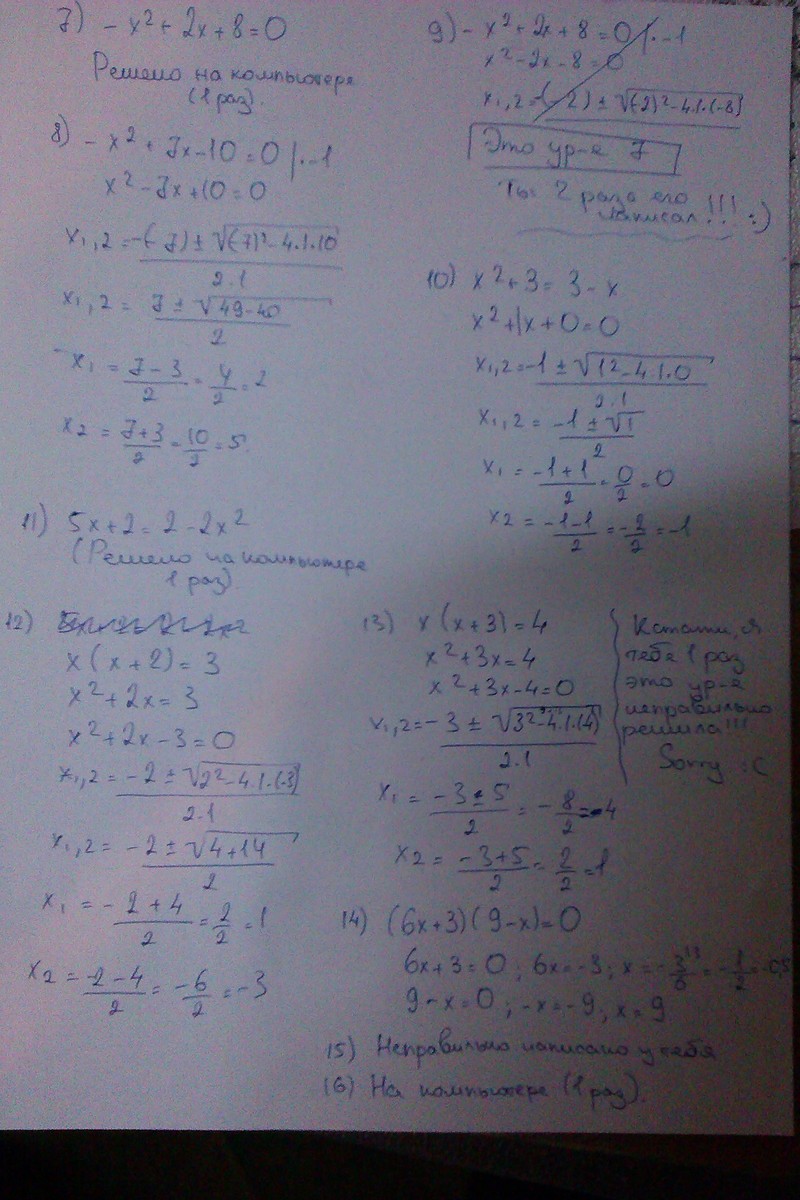 7) - x² + 2x + 8 = 0
Решено на компьютере
(1 раз).
8) - x² + 7x - 10 = 0 | · -1
x² - 7x + 10 = 0
x₁,₂ = -(-7) ± √(-7)² - 4·1·10
2·1
x₁,₂ = 7 ± √49 - 40
2
x₁ = 7 - 3 / 2 = 4 / 2 = 2
x₂ = 7 + 3 / 2 = 10 / 2 = 5
9) - x² + 2x + 8 = 0 | · -1
x² - 2x - 8 = 0
x₁,₂ = (-2) ± √(-2)² - 4·1·(-8)
Это ур-е 7
Ты 2 раза его
написал!!! :)
10) x² + 3 = 3 - x
x² + 1x + 0 = 0
x₁,₂ = -1 ± √1² - 4·1·0
2·1
x₁,₂ = -1 ± √1
2
x₁ = -1 + 1 / 2 = 0 / 2 = 0
x₂ = -1 - 1 / 2 = -2 / 2 = -1
11) 5x + 2 = 2 - 2x²
(Решено на компьютере
1 раз).
12)
x (x + 2) = 3
x² + 2x = 3
x² + 2x - 3 = 0
x₁,₂ = -2 ± √2² - 4·1·(-3)
2·1
x₁,₂ = -2 ± √4 + 14
2
x₁ = -2 + 4 / 2 = 2 / 2 = 1
x₂ = -2 - 4 / 2 = -6 / 2 = -3
13) x (x + 3) = 4
x² + 3x = 4
x² + 3x - 4 = 0
x₁,₂ = -3 ± √3² - 4·1·(4)
2·1
x₁ = -3 - 5 / 2 = -8 / 2 = -4
x₂ = -3 + 5 / 2 = 2 / 2 = 1
Кстати, я
тебе 1 раз
это ур-е
неправильно
решила!!!
Sorry :C
14) (6x + 3)(9 - x) = 0
6x + 3 = 0; 6x = -3; x = -3 / 6 = -1 / 2 = -0,5
9 - x = 0; -x = -9; x = 9
15) Неправильно написано у тебя
16) На компьютере (1 раз).